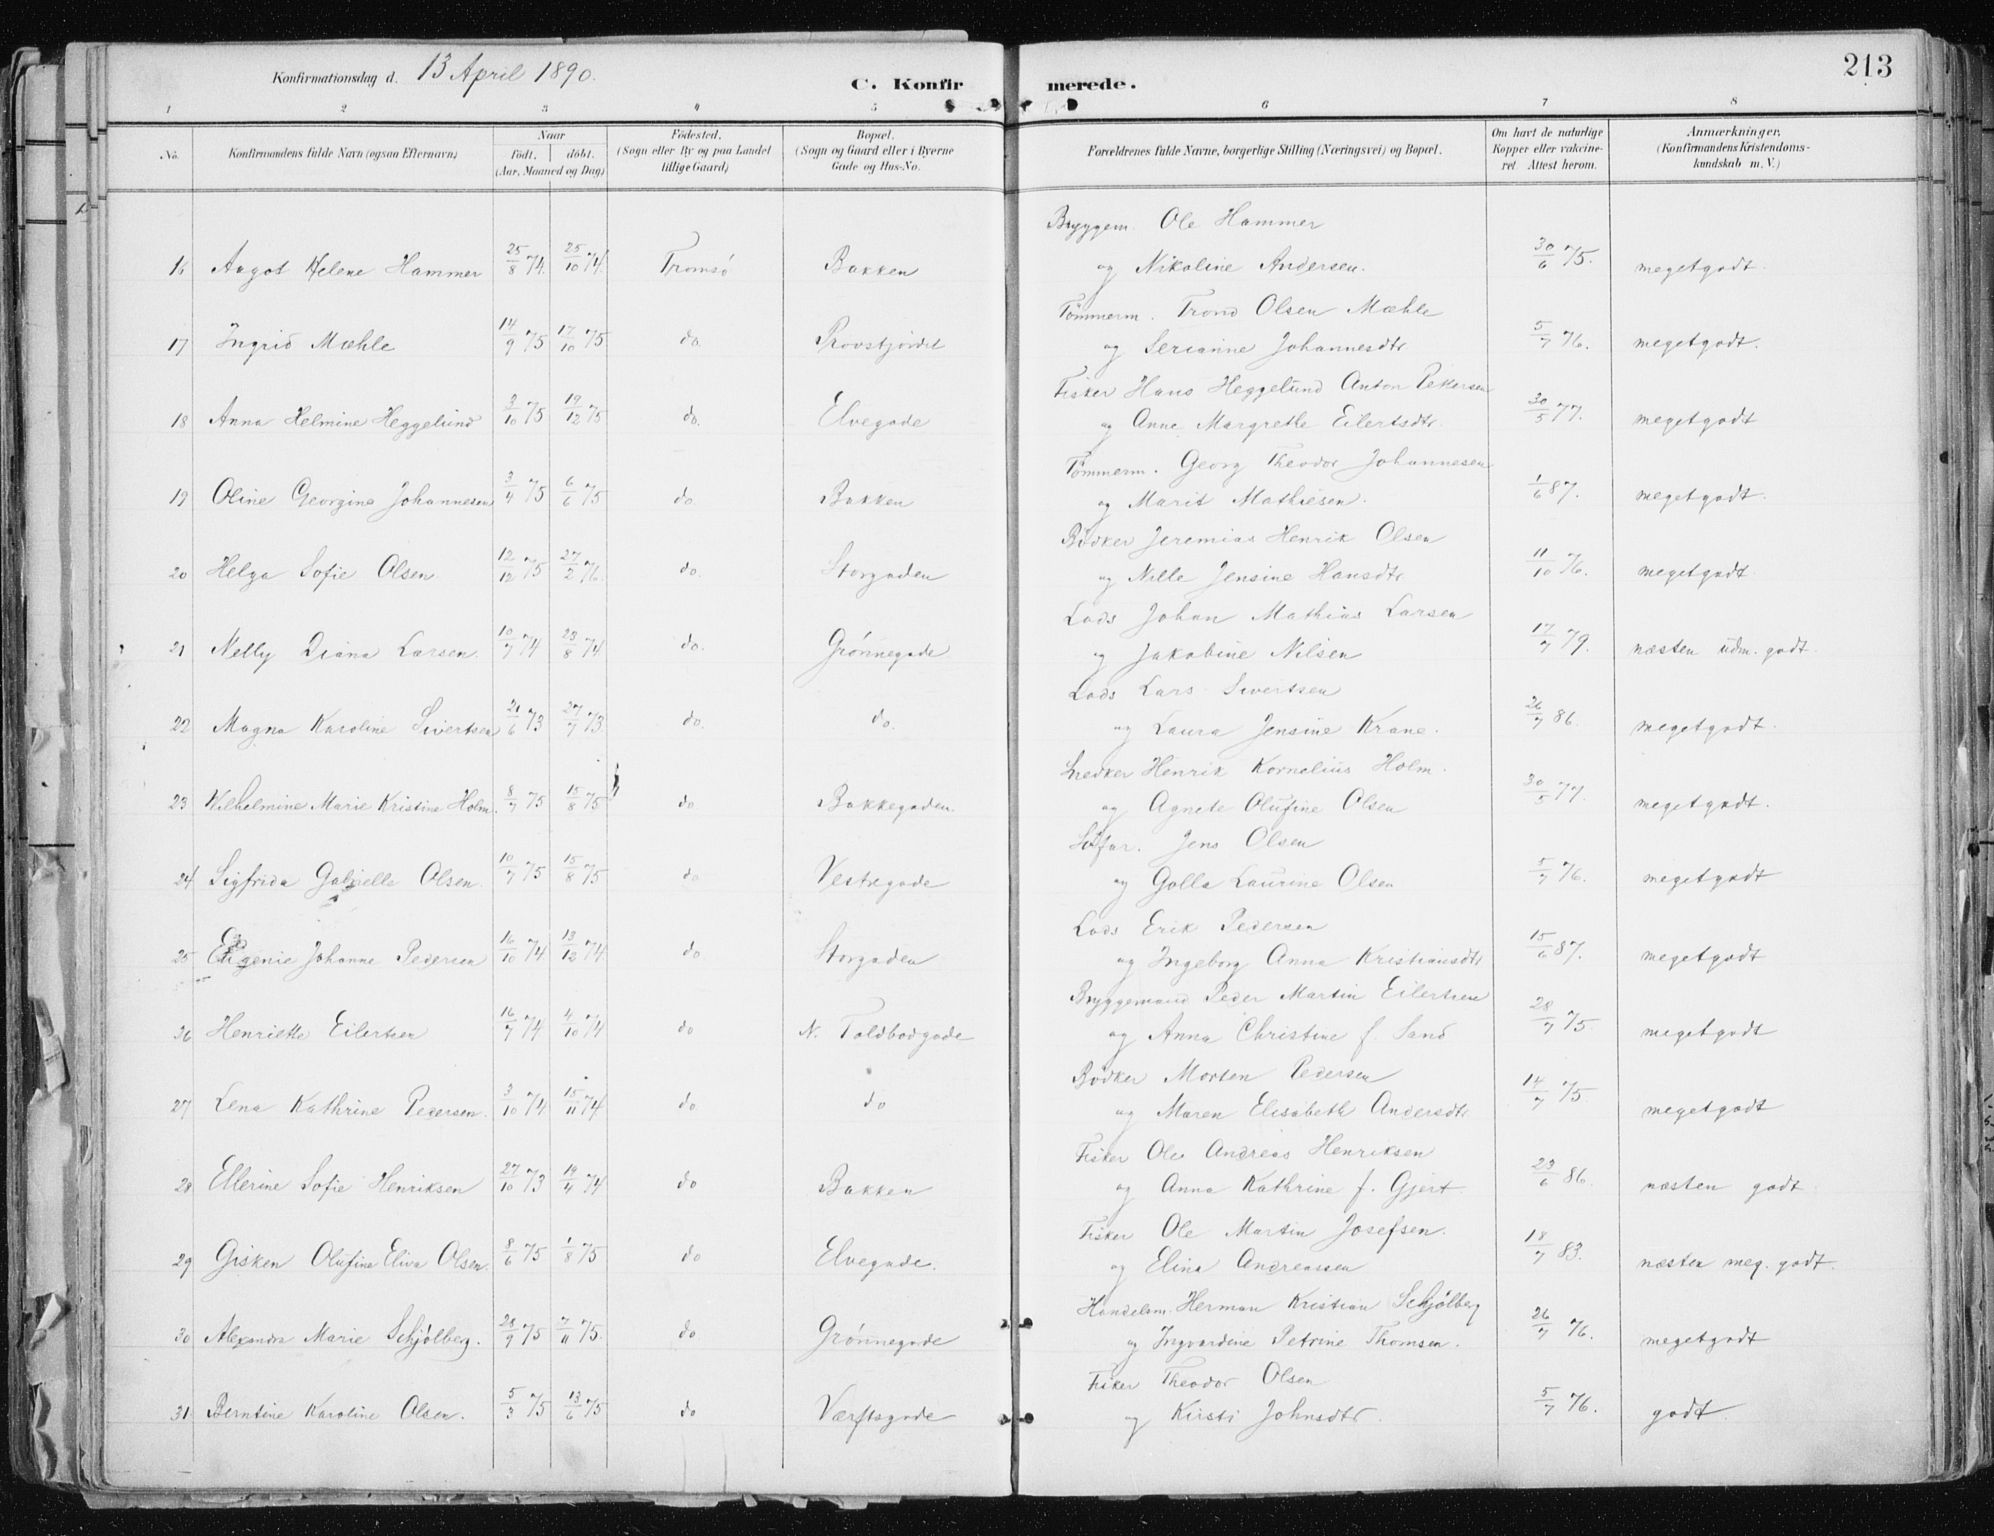 Konfirmationsdag d. 13 April 1890.
C. Konfirmerede.
213
1 2 3 4 5 6 7 8
No. Konfirmandens fulde Navn (ogsaa Efternavn) Naar Födt, döbt. (Aar, Maaned og Dag) Födested. (Sogn eller By og paa Landet tillige Gaard) Bopæl. (Sogn og Gaard eller i Byerne Gade og Hus-No. Forældrenes fulde Navne, borgerlige Stilling (Næringsvei) og Bopæl. Om havt de naturlige Kopper eller vakcineret. Attest herom. Anmærkninger, (Konfirmandens Kristendomskundskab m. V.)
Bryggem. Ole Hammer
16 Aagot Helene Hammer 25/8 74 25/10 74. Tromsö Bakken og Nikoline Andersen. 30/6 75. megetgodt.
Tömmerm. Trond Olsen Mæhle
17 Ingrid Mæhle 14/9 75 17/10 75 do. Provstjordet og Serianne Johannesdtr 5/7 76. megetgodt.
Fisker Hans Heggelund Anton Pettersen
18 Anna Helmine Heggelund 3/10 75 19/12 75 do. Elvegade og Anne Margrethe Eilertsdtr. 30/5 77. megetgodt
Tömmerm. Georg Theodor Johannesen
19 Oline Georgine Johannesen 3/4 75 6/6 75 do Bakken og Marit Mathiesen. 1/6 87. megetgodt.
Bödker Jeremias Henrik Olsen
20 Helga Sofie Olsen 12/12 75 27/2 76. do. Storgaden og Nille Jensine Hansdtr 11/10 76. megetgodt
Lods Johan Mathias Larsen
21 Nelly Diana Larsen. 10/7 74 23/8 74 do. Grönnegade og Jakobine Nilsen 17/7 79. næsten udm. godt.
Lods Lars Sivertsen
22 Magna Karoline Sivertsen 21/6 73 27/7 73. do. do. og Laura Jensine Krane. 26/7 86. megetgodt.
Snedker Henrik Kornelius Holm.
23 Vilhelmine Marie Kristine Holm. 8/7 75 15/8 75 do Bakkegaden. og Agnete Olufine Olsen 30/5 77. megetgodt.
Söfar. Jens Olsen
24 Sigfrida Gabrielle Olsen. 10/7 75 15/8 75 do Vestregade og Golla Laurine Olsen 5/7 76. megetgodt
Lods Erik Pedersen
25 Eugenie Johanne Pedersen 16/10 74 13/12 74 do Storgaden og Ingeborg Anna Kristiansdtr 15/6 87. megetgodt
Bryggemand Peder Martin Eilertsen
26 Henriette Eilertsen 16/7 74 4/10 74 do N. Toldbodgade og Anna Christine f. Sand 28/7 75. megetgodt
Bödker Morten Pedersen
27 Lena Kathrine Pedersen. 3/10 74 15/11 74 do do og Maren Elisabeth Andersdtr 14/7 75. megetgodt
Fisker Ole Andreas Henriksen
28 Ellerine Sofie Henriksen 27/10 73 19/4 74 do Bakken og Anna Kathrine f. Gjert. 23/6 86. næsten godt
Fisker Ole Martin Josefsen.
29 Gisken Olufine Eliva Olsen. 8/6 75 1/8 75 do Elvegade. og Elina Andreassen 18/7 83. næsten meg. godt.
Handelsm. Herman Kristian Schjölberg
30 Alexandra Marie Schjölberg. 28/9 75 7/11 75. do Grönnegade og Ingvardine Petrine Thomsen. 26/7 76. megetgodt
Fisker Theodor Olsen
31 Berntine Karoline Olsen. 5/3 75 13/6 75 do Værftsgade og Kirsti Johnsdtr. 5/7 76. godt